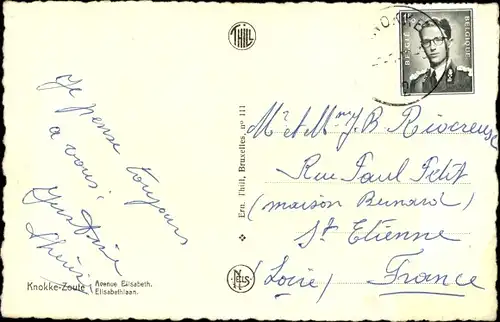 THILL
KNOKKE
BELGIË BELGIQUE
Je pense toujours
a vous,
Ern. Thill, Bruxelles, nº 111
NELS
Knokke-Zoute
Avenue Elisabeth.
Elisabethlaan.
Mr et Mme J. B
Rue Paul Petit
(maison Bernard)
St Etienne
(Loire) France